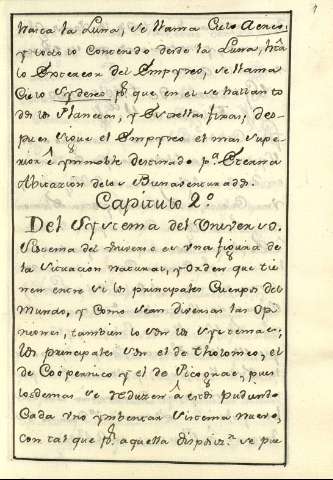 hasta la Luna, se llama Cielo Aereo,
y todo lo Contenido desde la Luna, hta
lo Interior del Impyreo, se llama
Cielo Sydereo pr que, en el se hallan to
dos los Planetas, y Estrellas fixas, des-
pues sigue el Impyreo el mas supe-
rior è ymmoble destinado pa Eterna
Abitazion de los Buenabenturados.
Capitulo 2º
Del Systema del Universo.
Sistema del universo es una figura de
la Situacion natural, y Orden que tie
nen entre si los principales Cuerpos del
Mundo, y Como sean diversas las Opi-
niones, tambien lo son los Systemas;
los principales son el de tholomeo, el
de Coopernico y el de Ticograe, pues
los demas se reduzen â estos pudiendo
Cada uno ymbentar Sistema nuevo,
con tal que pr aquella dispoizn se pue